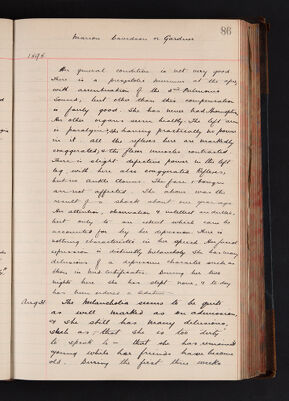 86
Marion Davidson or Gardner
1898
Her general condition is not very good
There is a presystolic murmur at the apex
with accentuation of the 2nd Pulmonic
Sound, but other than this compensation
is fairly good. She has never had Haemoptysis
Her other organs seem healthy. The left arm
is paralysed, she having practically no power
in it. all the reflexes here are markedly
exaggerated, & the flexor muscles contracted.
There is slight defective power in the left
leg with here also exaggerated Reflexes,
but no ankle clonus. The face & tongue
are not affected. The above was the
result of a shock about one year ago
Her attention, observation & intellect are duller,
but only to an extent which can be
accounted for by her depression. There is
nothing characteristic in her speech. Her facial
expression is distinctly melancholy. She has many
delusions of a depressive character such as
those in her Certificates. During her two
nights here she has slept none, & to day
has been ordered a sedative.
Aug 31. The Melancholia seems to be quite
as well marked as on admission,
& she still has many delusions,
such as; – that she is too dirty
to speak to – that she has remained
young while her friends have become
old. During the first three weeks